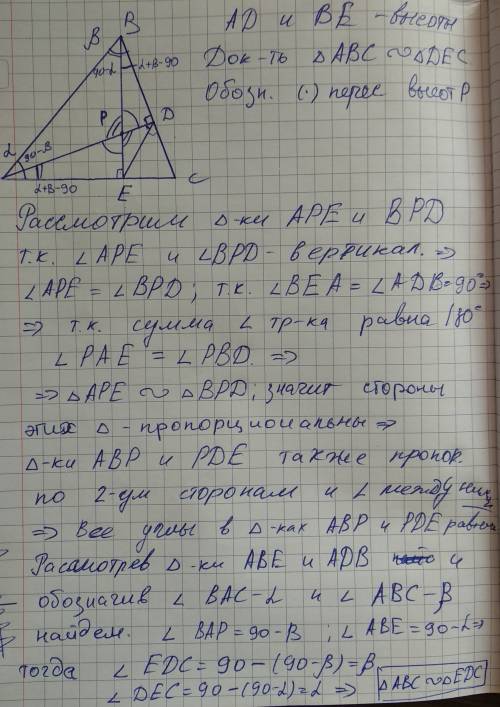 B
AD и BE - высоты
β
90-α
α+β-90
Док-ть △ABC ∾ △DEC
Обозн. (·) перес высот P
P
D
α
90-β
α+β-90
E
C
Рассмотрим △-ки APE и BPD
т.к. ∠APE и ∠BPD - вертикал. ⇒
∠APE = ∠BPD; т.к. ∠BEA = ∠ADB = 90° ⇒
⇒ т.к. сумма ∠ тр-ка равна 180°
∠PAE = ∠PBD. ⇒
⇒ △APE ∾ △BPD; значит стороны
этих △ - пропорциональны ⇒
△-ки ABP и PDE также пропор.
по 2-ум сторонам и ∠ между ними
⇒ Все углы в △-ках ABP и PDE равны
Рассмотрев △-ки ABE и ADB и
обозначив ∠ BAC - α и ∠ ABC - β
найдем. ∠ BAP = 90 - β ; ∠ ABE = 90 - α ⇒
тогда ∠ EDC = 90 - (90 - β) = β
∠ DEC = 90 - (90 - α) = α ⇒ △ABC ∾ △EDC